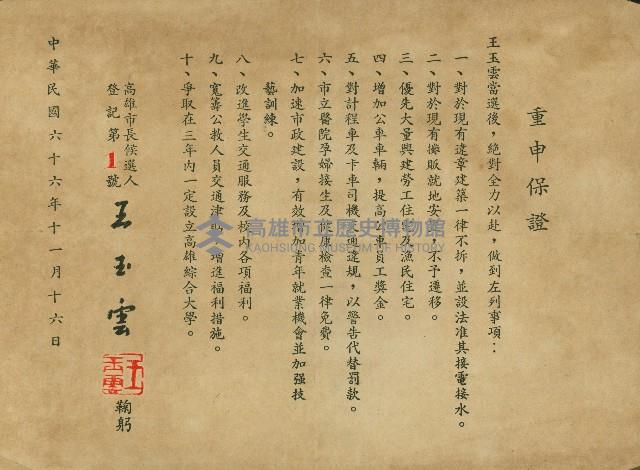 重申保證
王玉雲當選後，絕對全力以赴，做到左列事項：
一、對於現有違章建築一律不拆，並設法准其接電接水。
二、對於現有攤販就地安置，不予遷移。
三、優先大量興建勞工住宅及漁民住宅。
四、增加公車車輛，提高公車員工獎金。
五、對計程車及卡車司機交通違規，以警告代替罰款。
六、市立醫院孕婦接生及健康檢查一律免費。
七、加速市政建設，有效增加青年就業機會並加强技
藝訓練。
八、改進學生交通服務及校內各項福利。
九、寬籌公教人員交通津貼，增進福利措施。
十、爭取在三年內一定設立高雄綜合大學。
高雄市長候選人
登記第1號
王玉雲
王玉雲
鞠躬
中華民國六十六年十一月十六日
高雄市立歷史博物館
KAOHSIUNG MUSEUM OF HISTORY